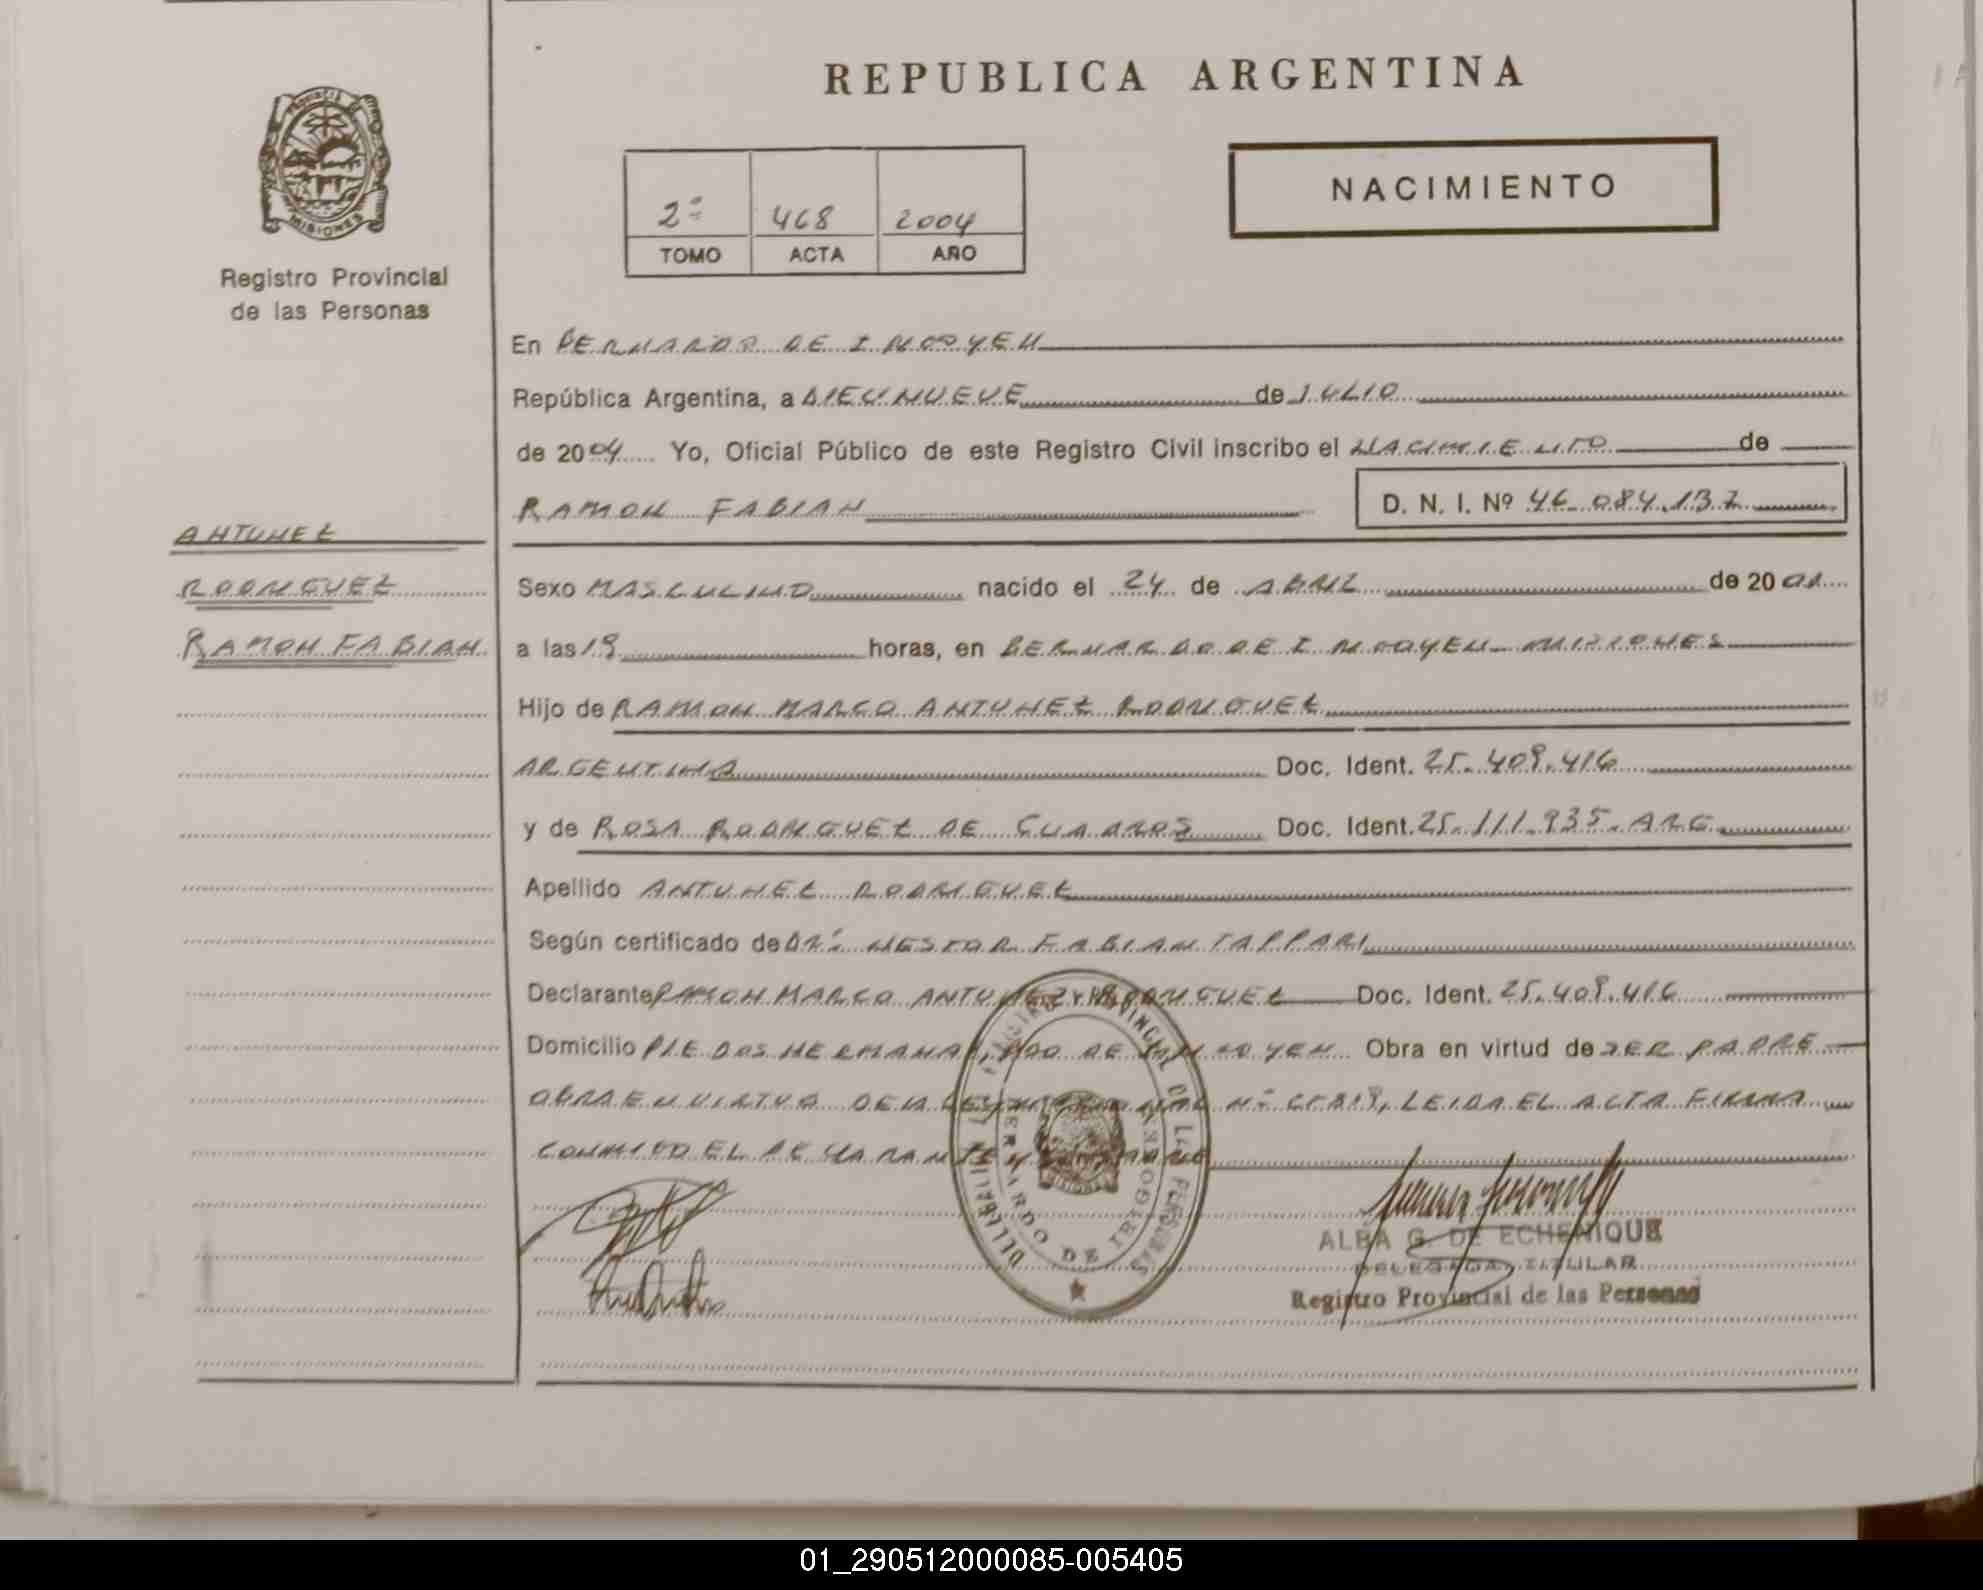 REPUBLICA ARGENTINA
NACIMIENTO
2º 468 2004
TOMO ACTA AÑO
MISIONES
Registro Provincial
de las Personas
En BERNARDO DE IRIGOYEN
República Argentina, a DIECINUEVE de JULIO
de 2004 Yo, Oficial Público de este Registro Civil inscribo el NACIMIENTO de
RAMON FABIAN D. N. I. Nº 46.084.137
ANTUNEZ
RODRIGUEZ
RAMON FABIAN
Sexo MASCULINO nacido el 24 de ABRIL de 20
a las 19 horas, en BERNARDO DE IRIGOYEN - MISIONES
Hijo de RAMON MARCO ANTUNEZ RODRIGUEZ
ARGENTINA Doc. Ident. 25.409.416
y de ROSA RODRIGUEZ DE Doc. Ident. 25.111.935. ARG
Apellido ANTUNEZ RODRIGUEZ
Según certificado de DR. NESTOR FABIAN TAPPARI
Declarante RAMON MARCO ANTUNEZ RODRIGUEZ Doc. Ident. 25.409.416
Domicilio PJE DOS HERMANAS, BDO DE IRIGOYEN Obra en virtud de SER PADRE
OBRA EN VIRTUD DE LA LEY LEIDA EL ACTA FIRMA
CONMIGO EL DECLARANTE
REGISTRO PROVINCIAL DE LAS PERSONAS
BERNARDO DE IRIGOYEN
MISIONES
ALBA G. DE ECHENIQUE
DELEGADA TITULAR
Registro Provincial de las Personas
01_290512000085-005405